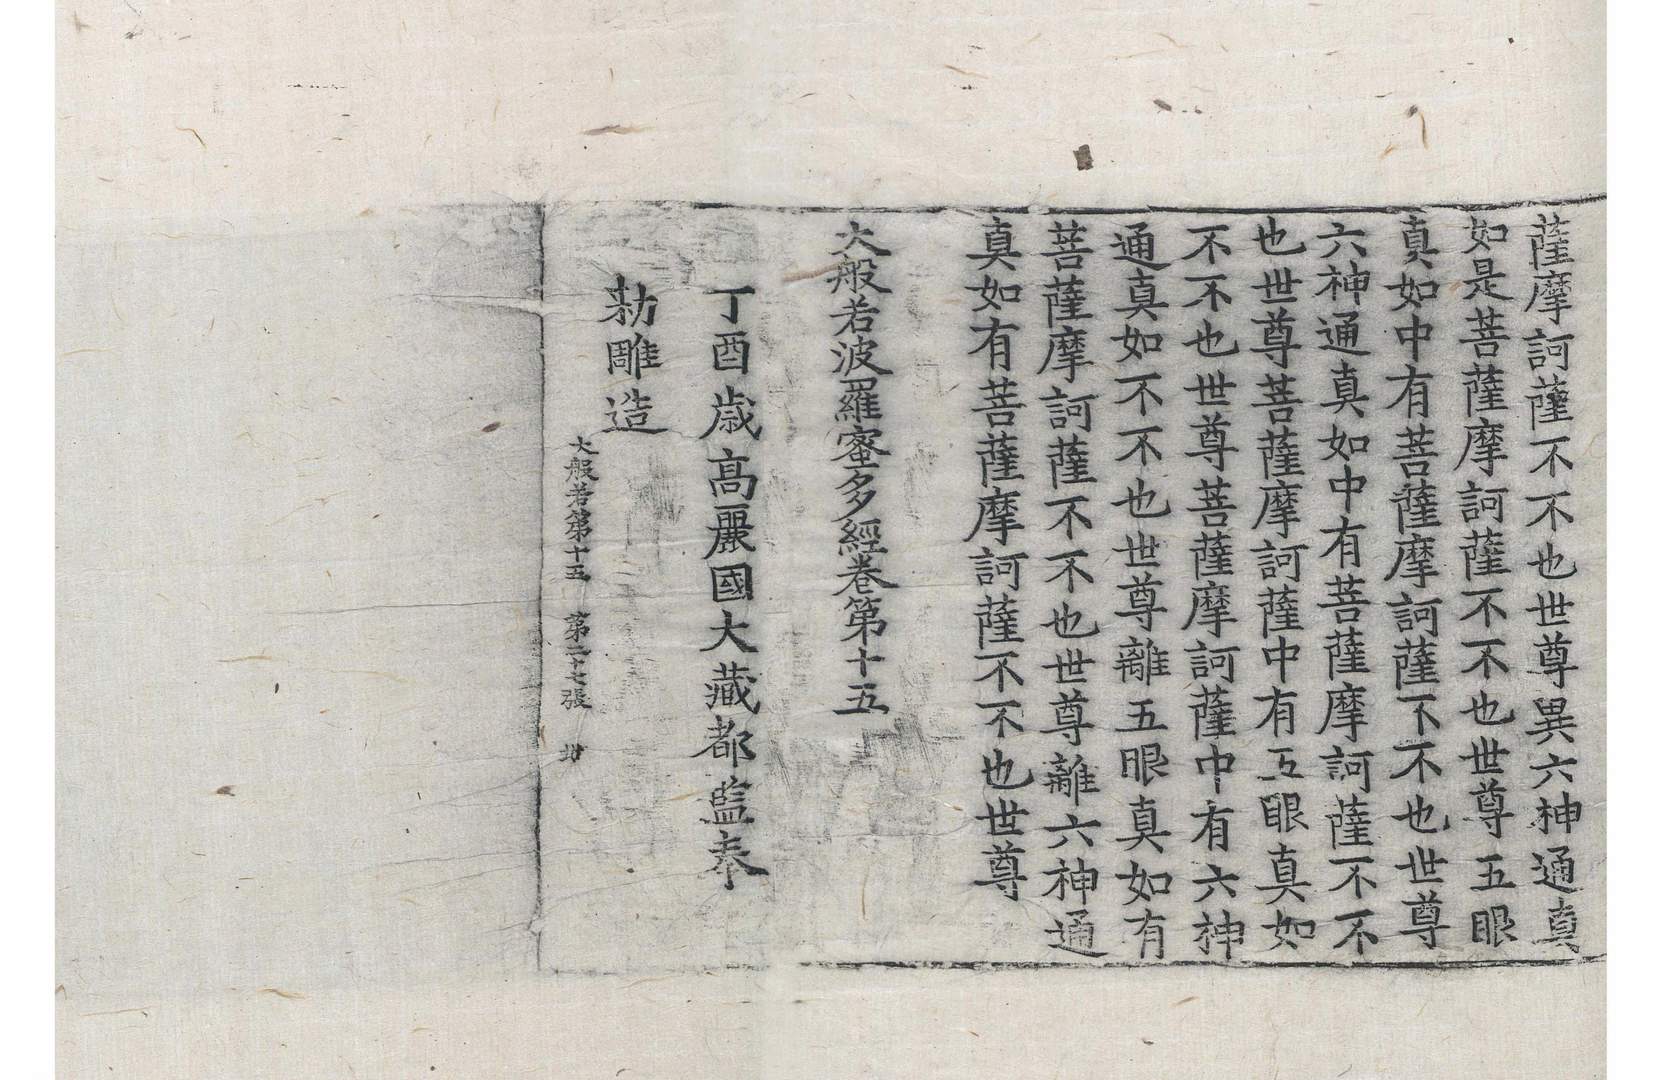 薩摩訶薩不不也世尊異六神通真
如是菩薩摩訶薩不不也世尊五眼
真如中有菩薩摩訶薩不不也世尊
六神通真如中有菩薩摩訶薩不不
也世尊菩薩摩訶薩中有五眼真如
不不也世尊菩薩摩訶薩中有六神
通真如不不也世尊離五眼真如有
菩薩摩訶薩不不也世尊離六神通
真如有菩薩摩訶薩不不也世尊
大般若波羅蜜多經卷第十五
丁酉歲高麗國大藏都監奉
勅雕造
大般若第十五 第二十七張 地